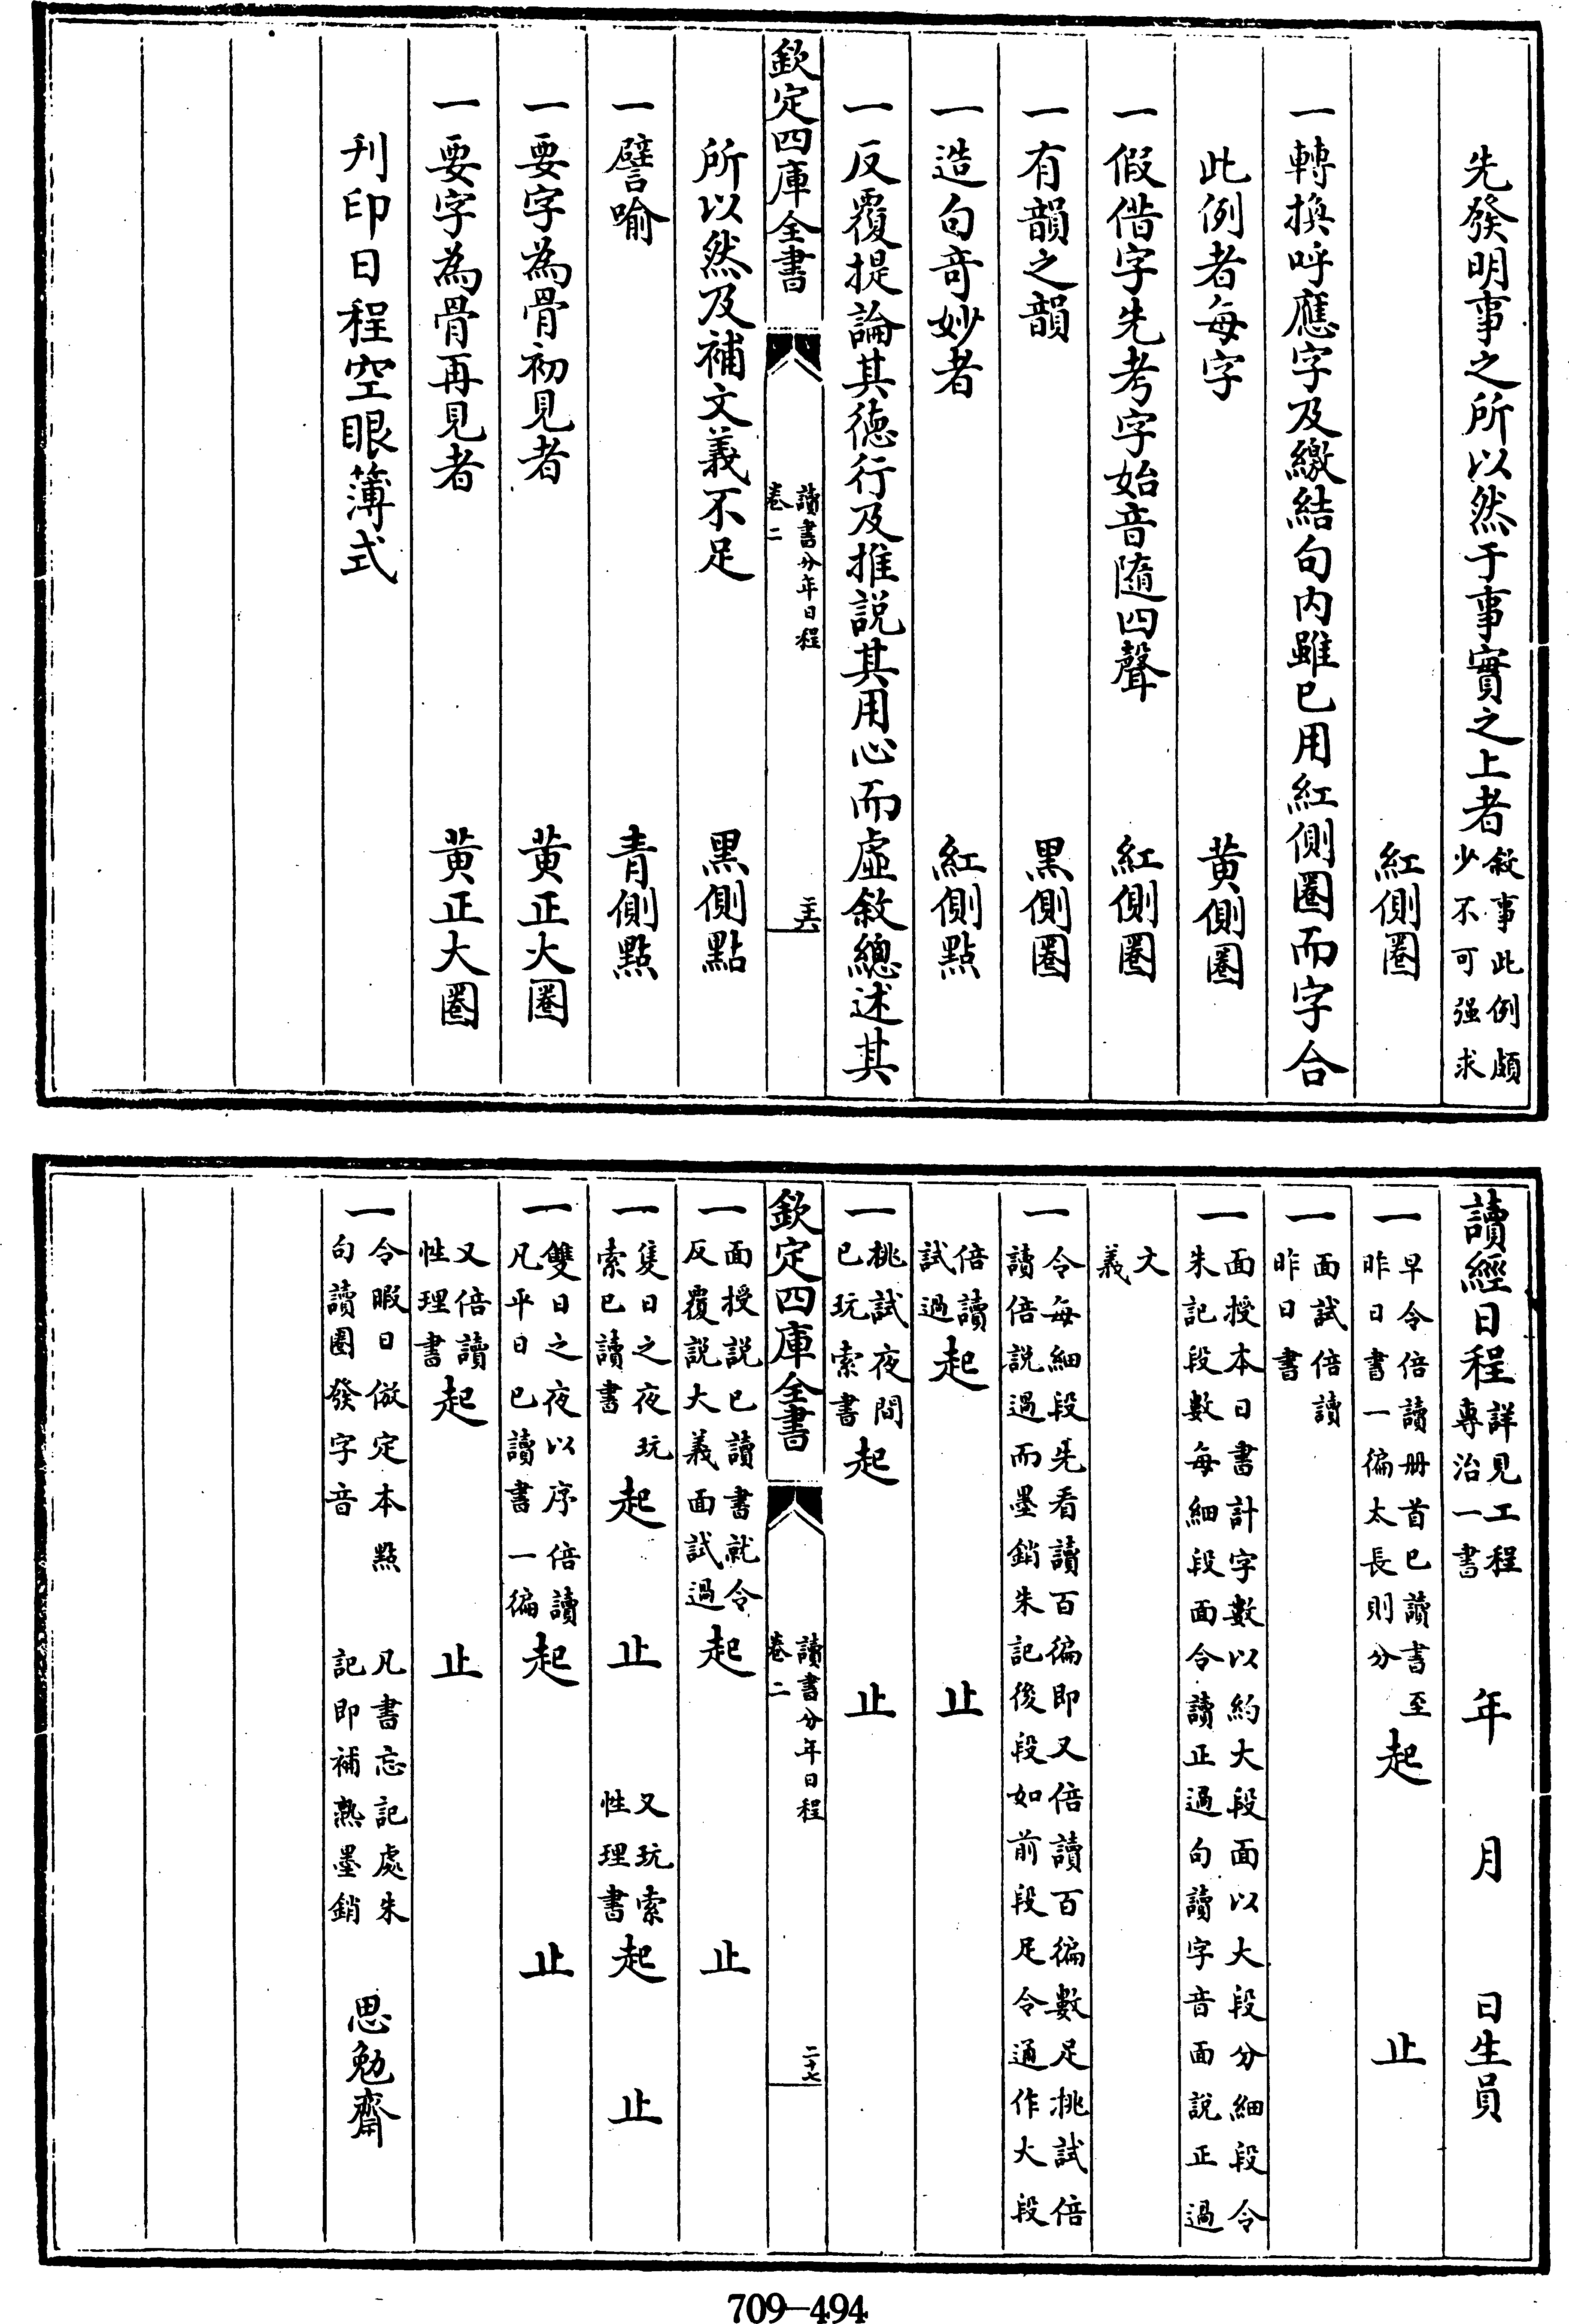 先發明事之所以然于事實之上者敘事此例頗少不可强求
紅側圈
一轉換呼應字及繳結句內雖已用紅側圈而字合
此例者每字 黄側圈
一假借字先考字始音隨四聲 紅側圈
一有韻之韻 黑側圈
一造句竒妙者 紅側點
一反覆提論其德行及推説其用心而虛敘總述其
欽定四庫全書 讀書分年日程卷二 二十六
所以然及補文義不足 黑側點
一譬喻 青側點
一要字為骨初見者 黄正大圈
一要字為骨再見者 黄正大圈
刋印日程空眼薄式
讀經日程詳見工程專治一書 年 月 日生員
一早令倍讀册首已讀書至昨日書一徧太長則分起 止
一面試倍讀昨日書
一面授本日書計字數以約大段面以大段分細段令朱記段數每細段面令讀正過句讀字音面説正過
文義
一令每細段先看讀百徧即又倍讀百徧數足挑試倍讀倍説過而墨銷朱記後段如前段足令通作大段
倍讀試過起 止
一挑試夜間已玩索書起 止
欽定四庫全書 讀書分年日程卷二 二十七
一面授説已讀書就令反覆説大義面試過起 止
一隻日之夜玩索已讀書起 止 又玩索性理書起 止
一雙日之夜以序倍讀凡平日已讀書一徧起 止
又倍讀性理書起 止
一令暇日倣定本點句讀圈發字音 凡書忘記處朱記即補熟墨銷 思勉齋
709-494